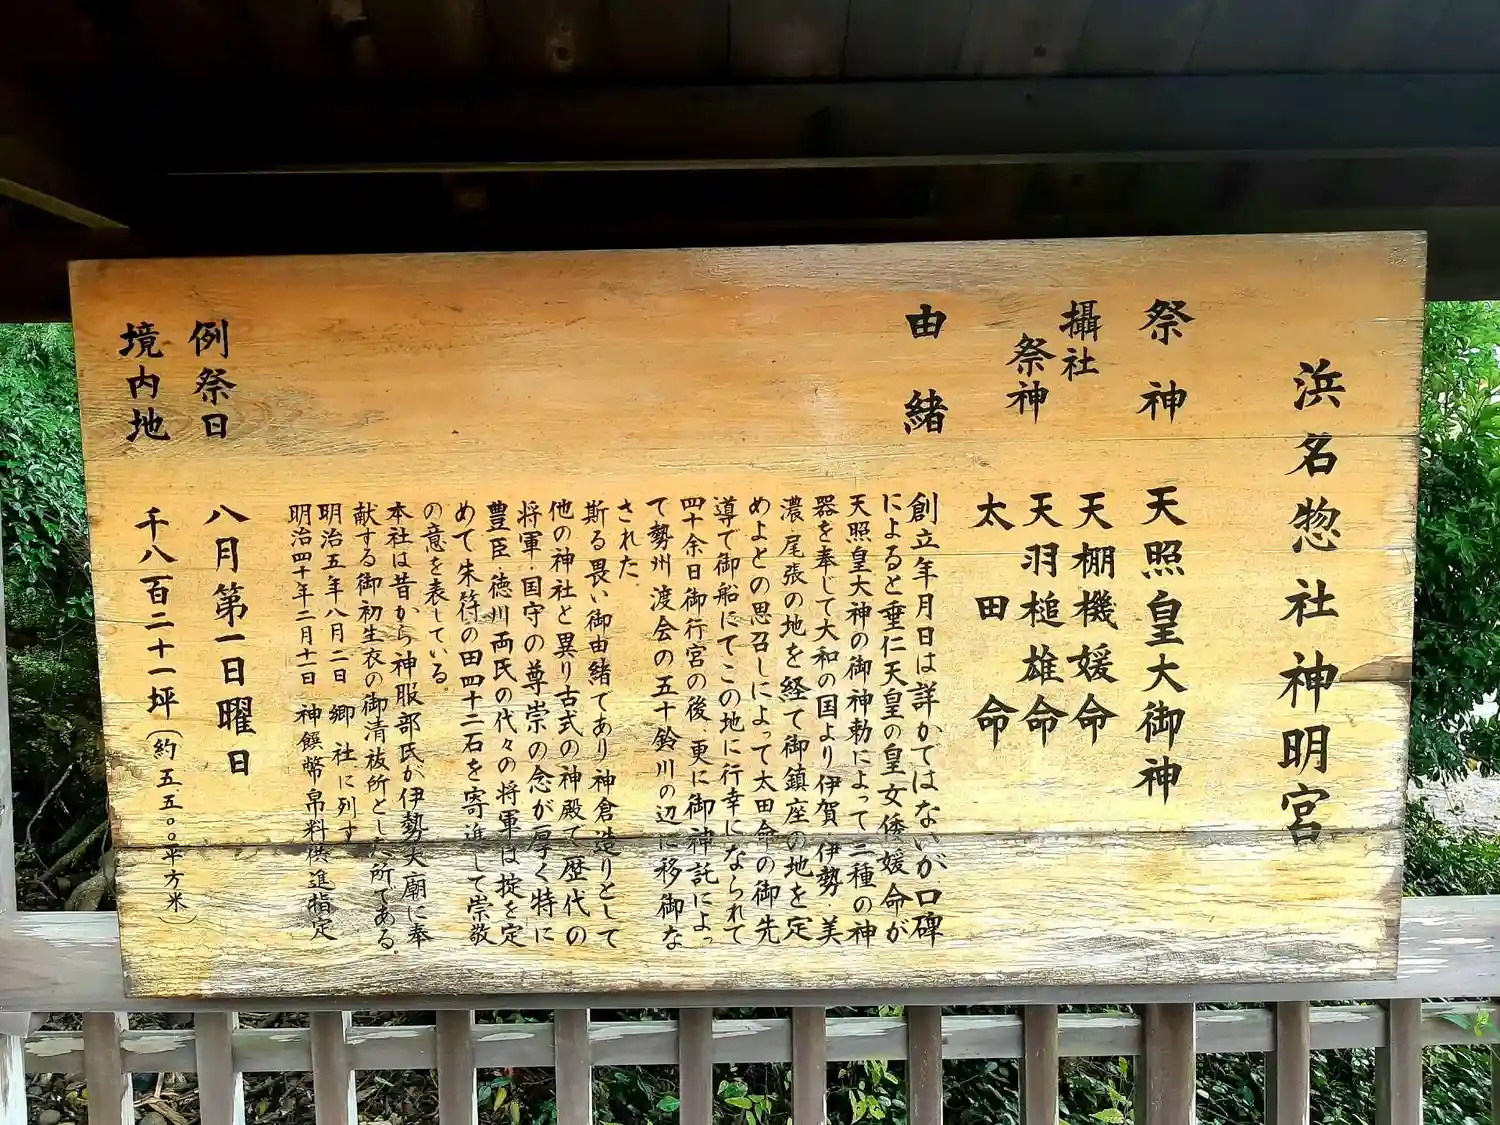 浜名惣社神明宮
祭神 天照皇大御神
攝社
祭神 天棚機媛命
天羽槌雄命
太田命
由緒
創立年月日は詳かではないが口碑
によると垂仁天皇の皇女倭媛命が
天照皇大神の御神勅によって三種の神
器を奉じて大和の国より伊賀 伊勢 美
濃尾張の地を経て御鎮座の地を定
めよとの思召しによって太田命の御先
導で御船にてこの地に行幸になられて
四十余日御行宮の後、更に御神託によっ
て勢州渡会の五十鈴川の辺に移御な
された。
斯る畏い御由緒であり神倉造りとして
他の神社と異り古式の神殿で歴代の
将軍・国守の尊崇の念が厚く特に
豊臣・徳川両氏の代々の将軍は掟を定
めて朱符の田四十二石を寄進して崇敬
の意を表している。
本社は昔から神服部氏が伊勢天廟に奉
献する御初生衣の御清祓所とした所である。
明治五年八月二日 郷社に列す
明治四十年二月十一日 神饌幣帛料供進指定
例祭日 八月第一日曜日
境内地 千八百二十一坪(約五五〇〇平方米)